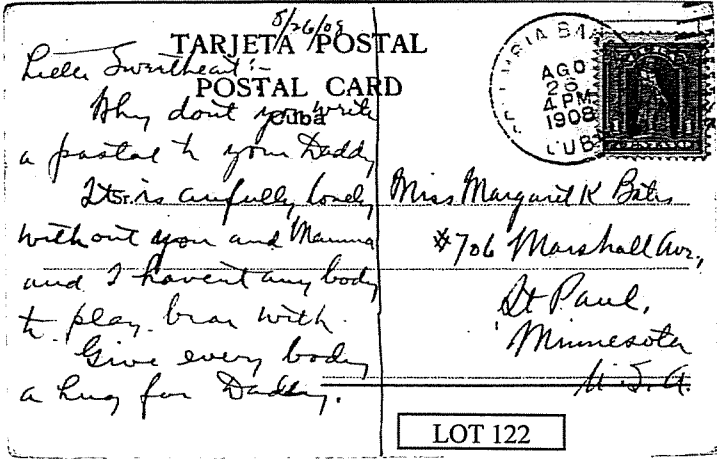 8/26/08
TARJETA POSTAL
Little Sweetheart:-
POSTAL CARD
Why dont you write
Cuba
a postal to your Daddy
It is awfully lonely
without you and Mamma
and I havent any body
to play bear with.
Give every body
a hug for Daddy.
COLUMBIA BA
AGO
26
4 PM
1908
CUBA
CUBA
1 1
Miss Margaret K Bates
#706 Marshall Ave.,
St Paul,
Minnesota
U.S.A.
LOT 122